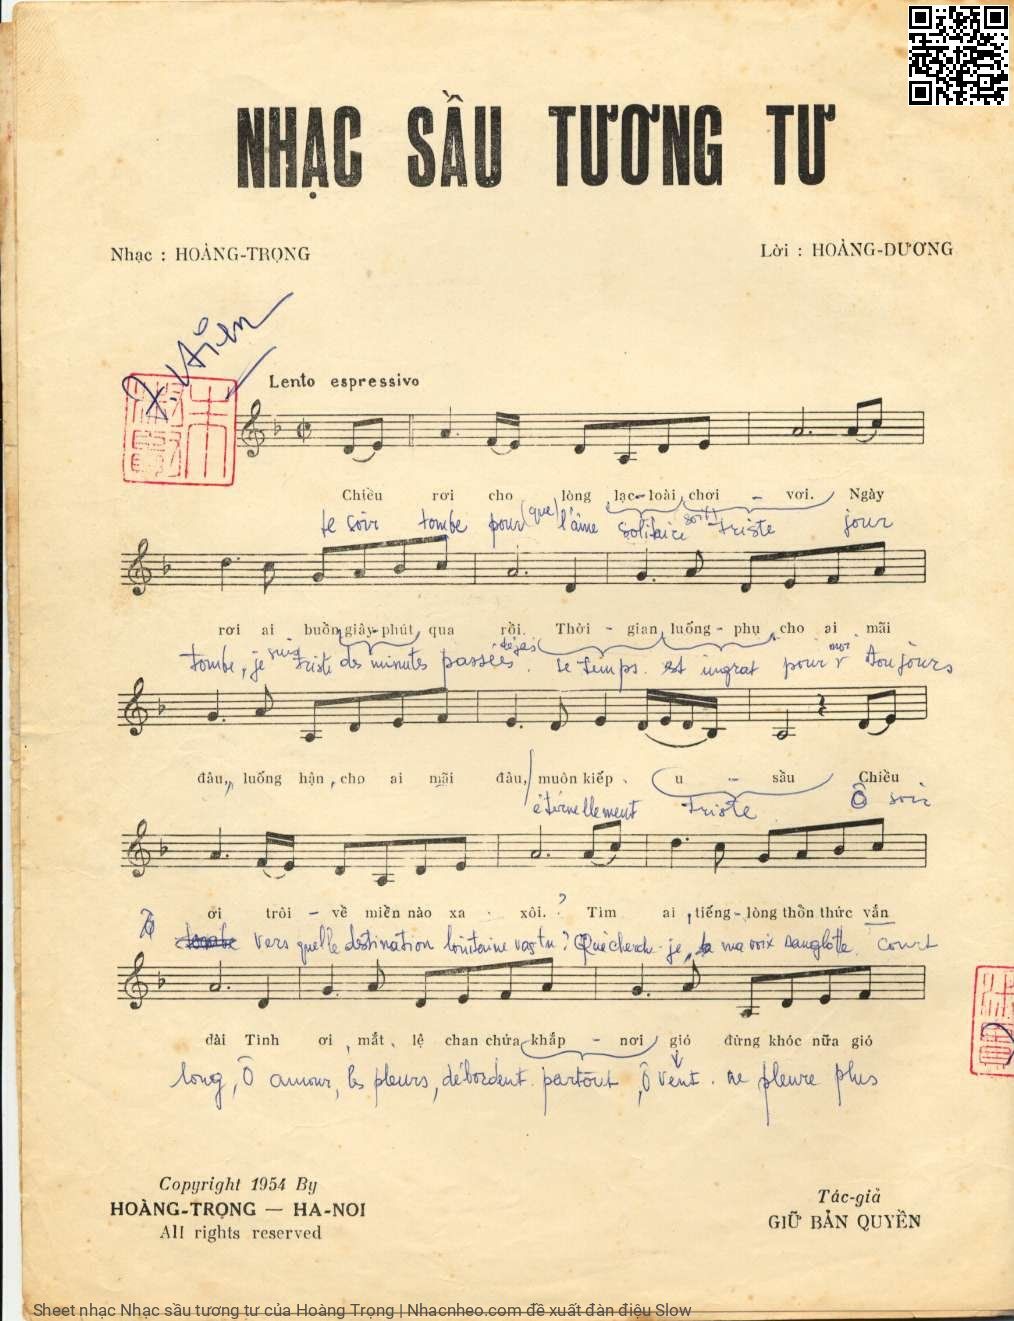 NHẠC SẦU TƯƠNG TƯ
Nhạc : HOÀNG-TRỌNG
Lời : HOÀNG-DƯƠNG
Lento espressivo
Chiều rơi cho lòng lạc-loài chơi - vơi. Ngày
le soir tombe pour (que) l'âme solitaire (soit) triste jour
rơi ai buồn giây-phút qua rồi. Thời - gian luống - phụ cho ai mãi
tombe, je suis triste des minutes passées déjà. Le temps est ingrat pour moi toujours
đâu, luống hận cho ai mãi đâu, muôn kiếp u - sầu Chiều
éternellement triste Ô soir
ơi trôi - về miền nào xa xôi. Tìm ai tiếng - lòng thổn thức vẫn
vers quelle destination lointaine vas tu ? Que cherche-je, ma voix sanglotte. court
dài Tình ơi mắt lệ chan chứa khắp - nơi gió đừng khóc nữa gió
long, Ô amour, les pleurs, débordent partout, ô vent. ne pleure plus
Copyright 1954 By
HOÀNG-TRỌNG — HA-NOI
All rights reserved
Tác-giả
GIỮ BẢN QUYỀN
Sheet nhạc Nhạc sầu tương tư của Hoàng Trọng | Nhacnheo.com đề xuất đàn điệu Slow